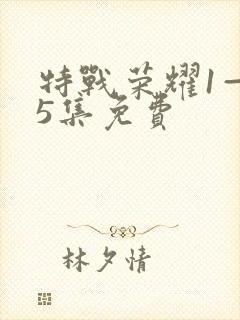 特戰榮耀1一
5集免費
林夕情